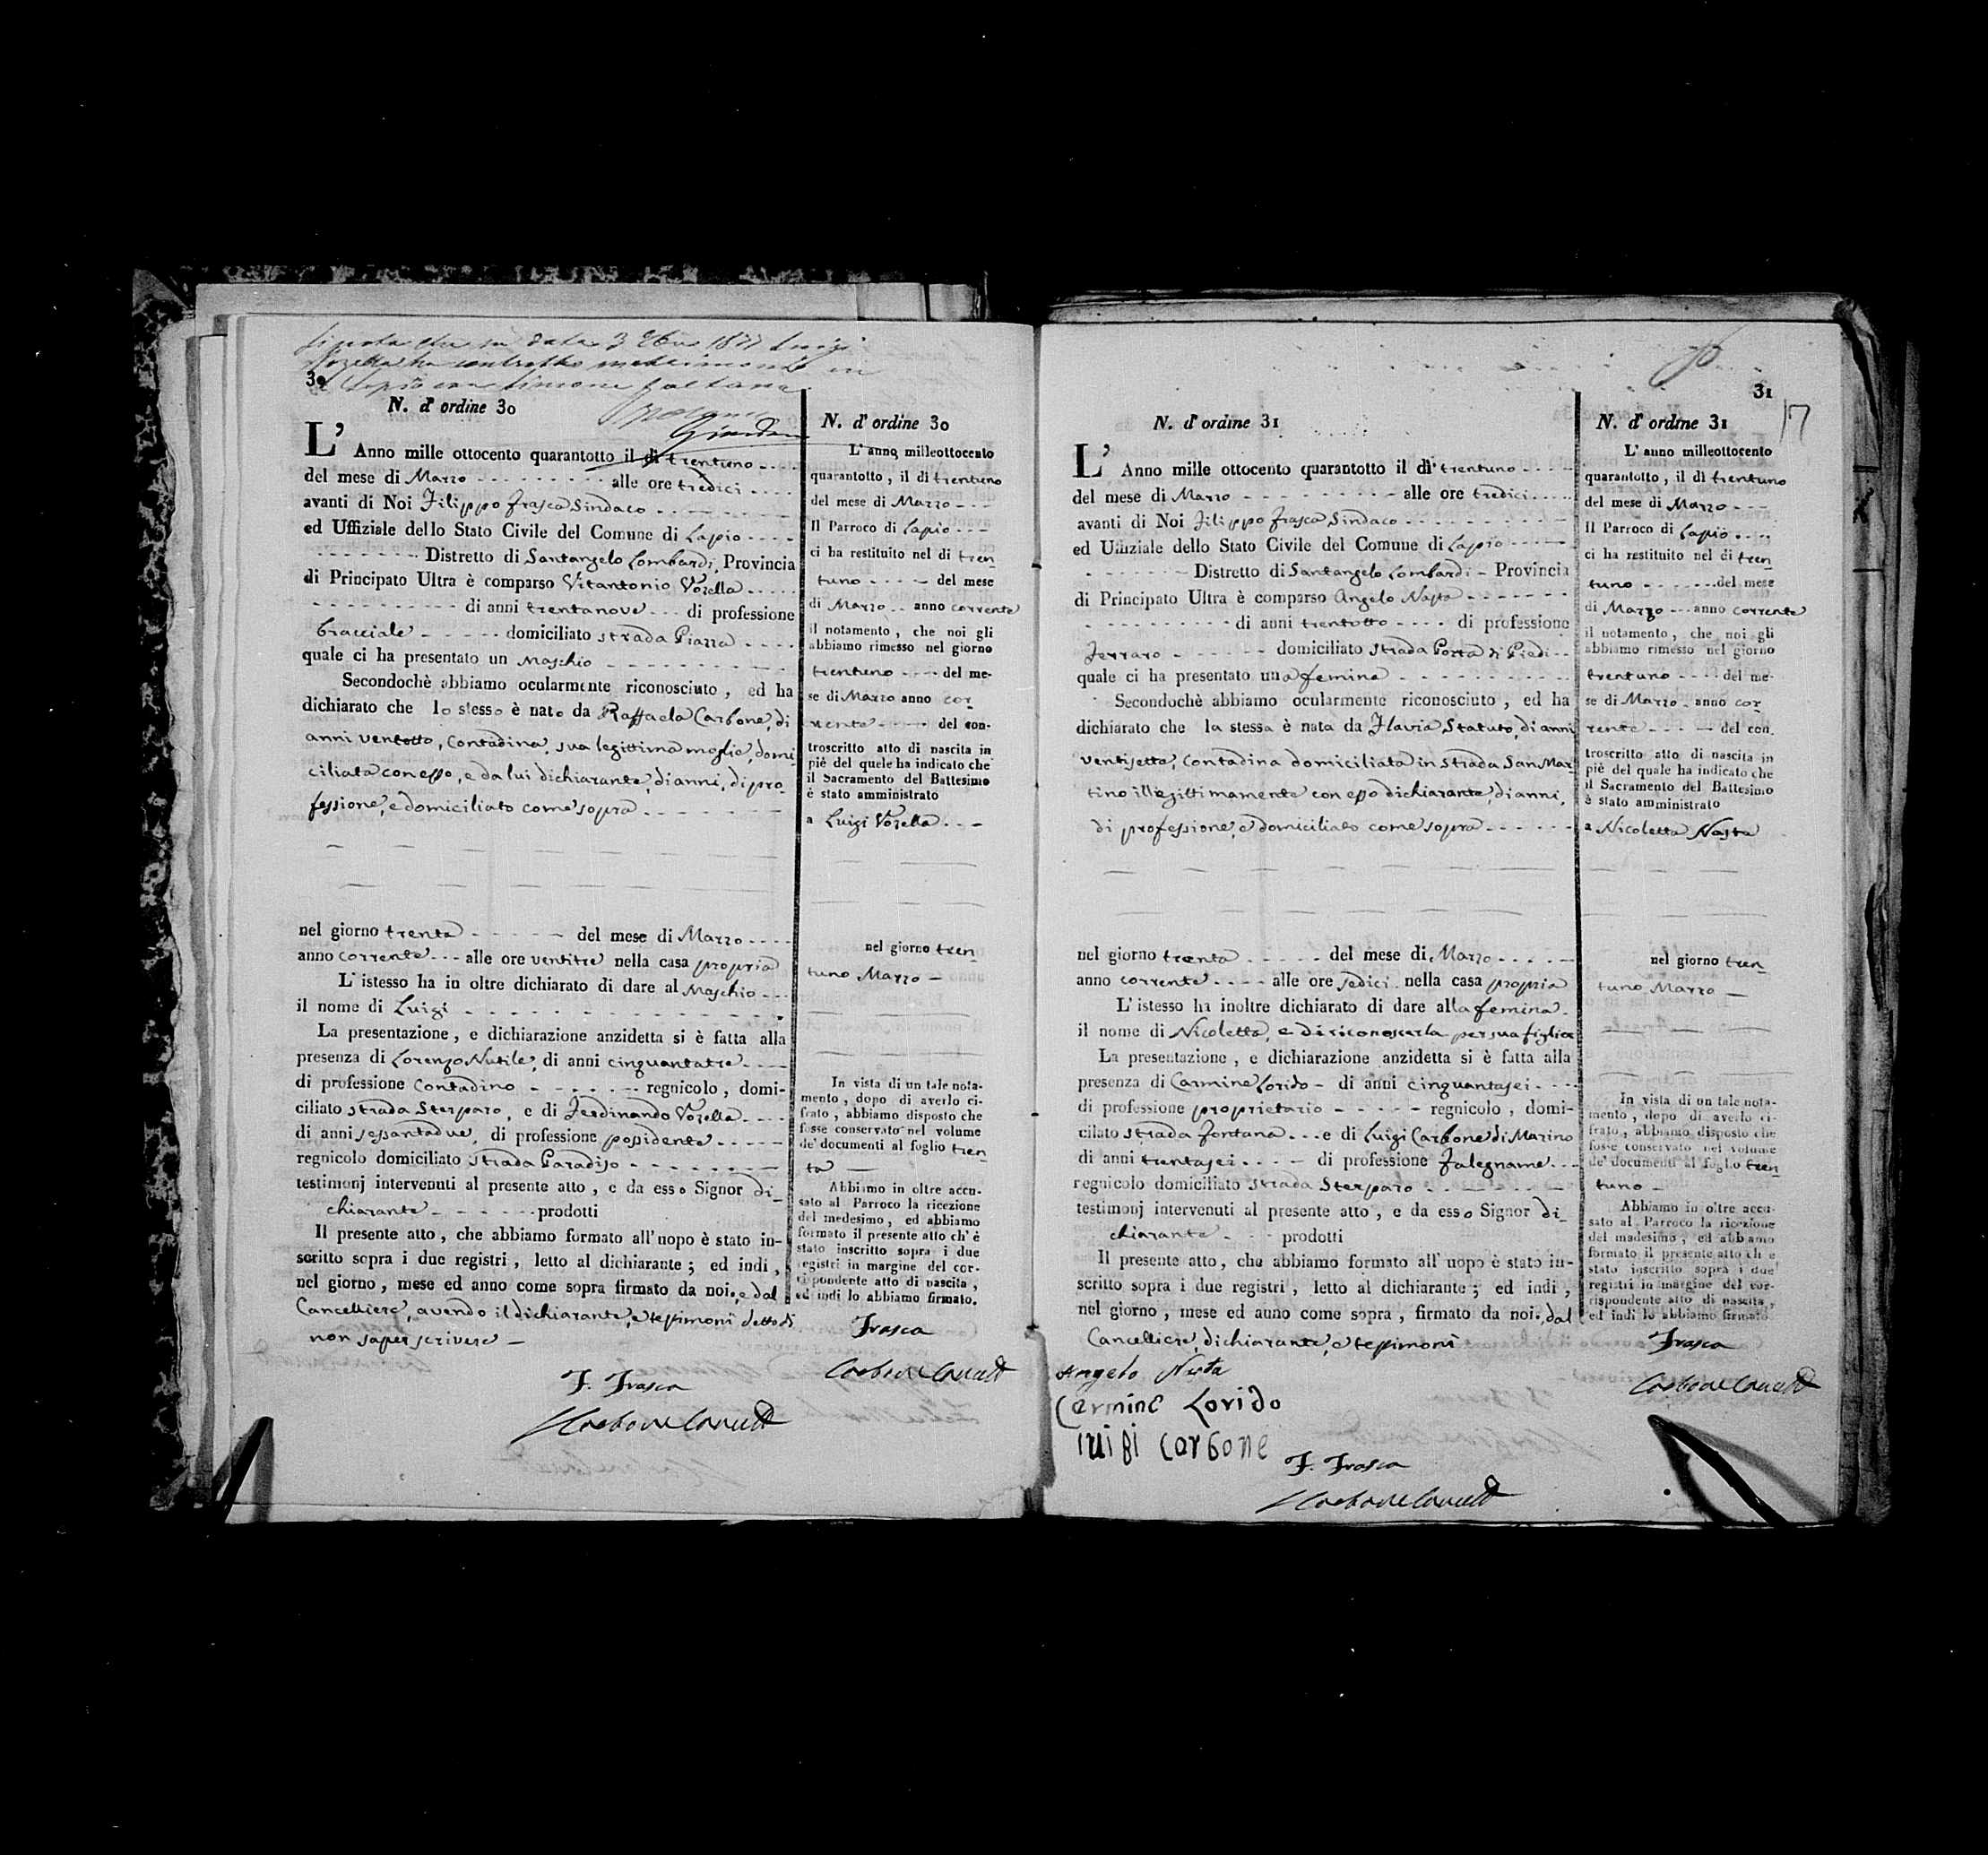 Si nota che in data 3
30
N. d' ordine 30
L' Anno mille ottocento quarantotto il dì trentuno
del mese di Marzo alle ore tredici
avanti di Noi Filippo Frasca Sindaco
ed Uffiziale dello Stato Civile del Comune di Lapio
Distretto di Santangelo Lombardi, Provincia
di Principato Ultra è comparso Vitantonio Vozella
di anni trentanove di professione
bracciale domiciliato strada Piazza
quale ci ha presentato un Maschio
Secondochè abbiamo ocularmente riconosciuto, ed ha
dichiarato che lo stesso è nato da Raffaela Carbone, di
anni ventotto, Contadina, sua legittima moglie, domi-
ciliata con esso, e da lui dichiarante, di anni, di pro-
fessione, e domiciliato come sopra
nel giorno trenta del mese di Marzo
anno corrente alle ore ventitre nella casa propria
L' istesso ha in oltre dichiarato di dare al Maschio
il nome di Luigi
La presentazione, e dichiarazione anzidetta si è fatta alla
presenza di Lorenzo Nutile, di anni cinquantatre
di professione Contadino regnicolo, domi-
ciliato strada Sterparo, e di Ferdinando Vozella
di anni sessantadue, di professione possidente
regnicolo domiciliato strada Paradiso
testimonj intervenuti al presente atto, e da esso Signor di-
chiarante prodotti
Il presente atto, che abbiamo formato all'uopo è stato in-
scritto sopra i due registri, letto al dichiarante; ed indi,
nel giorno, mese ed anno come sopra firmato da noi, e dal
Cancelliere, avendo il dichiarante, e testimoni detto di
non saper scrivere
F. Frasca
N. d' ordine 30
L' anno milleottocento
quarantotto, il dì trentuno
del mese di Marzo
Il Parroco di Lapio
ci ha restituito nel dì tren-
tuno del mese
di Marzo anno corrente
il notamento, che noi gli
abbiamo rimesso nel giorno
trentuno del me-
se di Marzo anno cor-
rente del con-
troscritto atto di nascita in
piè del quele ha indicato che
il Sacramento del Battesimo
è stato amministrato
a Luigi Vozella
nel giorno tren-
tuno Marzo
In vista di un tale nota-
mento, dopo di averlo ci-
frato, abbiamo disposto che
fosse conservato nel volume
de' documenti al foglio tren-
ta
Abbiamo in oltre accu-
sato al Parroco la ricezione
del medesimo, ed abbiamo
formato il presente atto ch' è
stato inscritto sopra i due
registri in margine del cor-
rispondente atto di nascita,
ed indi lo abbiamo firmato.
Frasca
31
17
N. d' ordine 31
L' Anno mille ottocento quarantotto il dì trentuno
del mese di Marzo alle ore tredici
avanti di Noi Filippo Frasca Sindaco
ed Uffiziale dello Stato Civile del Comune di Lapio
Distretto di Santangelo Lombardi Provincia
di Principato Ultra è comparso Angelo Nasta
di anni trentotto di professione
Ferraro domiciliato strada Porta di Piedi
quale ci ha presentato una femina
Secondochè abbiamo ocularmente riconosciuto, ed ha
dichiarato che la stessa è nata da Flavia Statuto, di anni
ventisette, Contadina domiciliata in strada San Mar-
tino illegittimamente con esso dichiarante, di anni,
di professione, e domiciliato come sopra
nel giorno trenta del mese di Marzo
anno corrente alle ore sedici nella casa propria
L' istesso ha inoltre dichiarato di dare alla femina
il nome di Nicoletta, e di riconoscerla per sua figlia
La presentazione, e dichiarazione anzidetta si è fatta alla
presenza di Carmine Lorido di anni cinquantasei
di professione proprietario regnicolo, domi-
cilato strada Fontana e di Luigi Carbone di Marino
di anni trentasei di professione Falegname
regnicolo domiciliato strada Sterparo
testimonj intervenuti al presente atto, e da esso Signor di-
chiarante prodotti
Il presente atto, che abbiamo formato all' uopo è stato in-
scritto sopra i due registri, letto al dichiarante; ed indi,
nel giorno, mese ed anno come sopra, firmato da noi, dal
Cancelliere, dichiarante, e testimoni
Angelo Nasta
Carmine Lorido
luigi carbone
F. Frasca
N. d' ordine 31
L' anno milleottocento
quarantotto, il dì trentuno
del mese di Marzo
Il Parroco di Lapio
ci ha restituito nel dì tren-
tuno del mese
di Marzo anno corrente
il notamento, che noi gli
abbiamo rimesso nel giorno
trentuno del me-
se di Marzo anno cor-
rente del con-
troscritto atto di nascita in
piè del quale ha indicato che
il Sacramento del Battesimo
è stato amministrato
a Nicoletta Nasta
nel giorno tren-
tuno Marzo
In vista di un tale nota-
mento, dopo di averlo ci-
frato, abbiamo disposto che
fosse conservato nel volume
de' documenti al foglio tren-
tuno
Abbiamo in oltre accu-
sato al Parroco la ricezione
del medesimo, ed abbiamo
formato il presente atto ch è
stato inscritto sopra i due
registri in margine del cor-
rispondente atto di nascita,
ed indi lo abbiamo firmato
Frasca